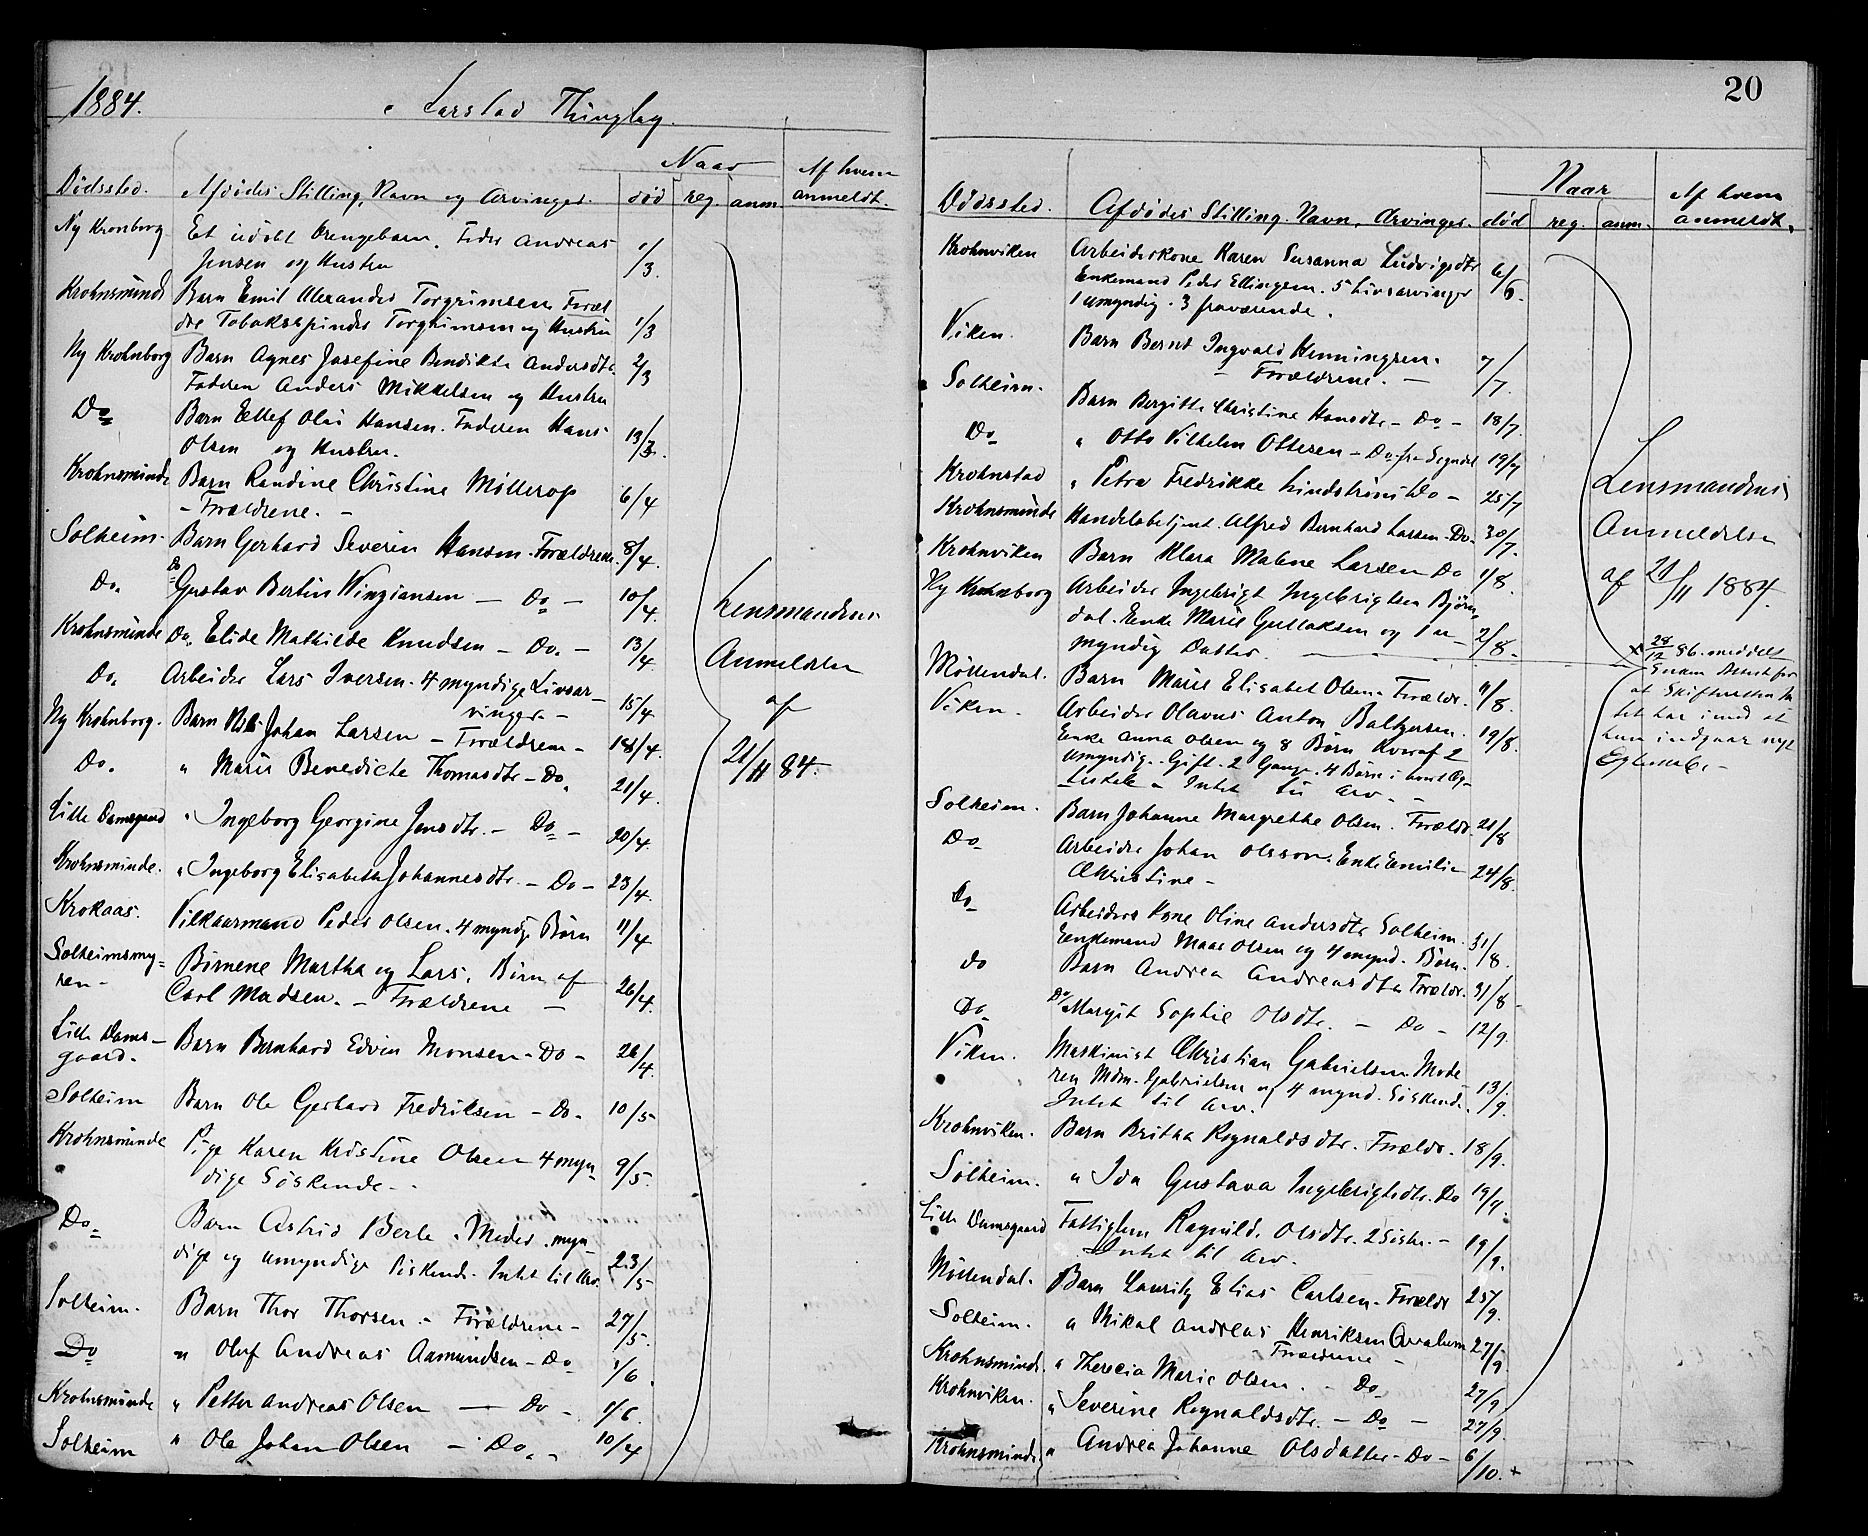 1884.
Thinglag.
Naar
Af hvem
Dödssted. Afdödes Stilling, Navn og Arvinger. död reg. anm. anmeldt.
Ny Kronborg Et udöbt Drengebarn. Fader Andreas 1/3.
Jensen og Hustru
Krohnsminde Barn Emil Alexander Torgrimsen Foræl 1/3
dre Tobaksspinder Torgrimsen og Hustru
Ny Krohnborg Barn Agnes Josefine Bendikte Andersdtr. 2/3
Faderen Anders Mikkelsen og Hustru
Do Barn Ellef Olai Hansen. Faderen Hans 13/3.
Olsen og Hustru.
Krohnsminde Barn Randine Christine Möllerop 6/4
- Forældrene. -
Solheim. Barn Gerhard Severin Hansen. Forældrene 8/4.
Do. Do Gustav Bertin Wingiansen - Do - 10/4.
Krohnsminde Do. Elide Mathilde Knudsen - Do. - 13/4
Do. Arbeider Lars Iversen. 4 myndige Livsar- 15/4
vinger -
Ny Krohnborg. Barn Nils Johan Larsen - Forældrene - 18/4.
Do. " Marie Benedicte Thomasdtr - Do. 21/4.
Lille Damsgaard " Ingeborg Georgine Jensdtr. - Do - 20/4.
Krohnsminde. " Ingeborg Elisabeth Johannesdtr. - Do - 23/4.
Krokaas. Vilkaarmand Peder Olsen. 4 myndge Börn 11/4
Solheimsmy- Börnene Martha og Lars, Börn af 26/4.
ren - Carl Madsen. - Forældrene -
Lille Dams- Barn Bernhard Edvin Monsen - Do - 26/4.
gaard.
Solheim Barn Ole Gerhard Fredriksen - Do. 10/5
Krohnsminde Pige Karen Kristine Olsen 4 myn- 9/5.
dige Söskende -
Do. Barn Astrid Berle. Moder. myn-
dige og umyndige Söskende. Intet til Arv. 23/5
Solheim. Barn Thor Thorsen. - Forældrene - 27/5.
Do " Oluf Andreas Aamundsen - Do 1/6.
Krohnsminde " Petter Andreas Olsen - Do - 1/6.
Solheim " Ole Johan Olsen - Do. - 10/4
Lensmandens
Anmeldelse
af
21/11 84.
20
Naar
Af hvem
Dödssted. Afdödes Stilling, Navn, Arvinger. död reg. anm. anmeldt.
Krohnviken Arbeiderskone Karen Susanna Ludvigsdtr 6/6.
Enkemand Peder Ellingsen. 5 Livsarvinger
1 umyndig. 3 fraværende.
Viken. Barn Bernt Ingvald Henningsen. 7/7.
- Forældrene. -
Solheim. Barn Bergitte Christine Hansdtr - Do - 18/7.
Do " Otto Vilhelm Ottesen - Do fra Sogndal 19/7
Krohnstad " Petra Fredrikke Lindström Do - 25/7
Krohnsminde Handelsbetjent Alfred Bernhard Larsen - Do. 30/7.
Krohnviken Barn Klara Malene Larsen Do 1/8.
Ny Krohnborg Arbeider Ingebrigt Ingebrigtsen Björn-
dal. Enke Marie Gullaksen og 1 u- 2/8.
myndig Datter.
Möllendal. Barn Marie Elisabet Olsen. Forældr. 11/8.
Viken. Arbeider Olavus Anton Baltzersen. 19/8.
Enke Anna Olsen og 8 Börn hvoraf 2
umyndig. Gift. 2 Gange. 4 Börn i hvert Æg-
teskab - Intet til Arv. -
Solheim. Barn Johanne Margrethe Olsen. Forældr. 21/8
Do Arbeider Johan Olsson. Enke Emilie 24/8.
Christine -
Do Arbeiders Kone Oline Andersdtr Solheim. 31/8.
Enkemand Maas Olsen og 4 mynd. Börn.
do Barn Andrea Andreasdtr Forældr. 31/8 -
Do Do Margit Sophie Olsdtr. - Do - 12/9.
Viken. Maskinist Christian Gabrielsen. Mode
ren Mdm. Gabrielsen og 4 mynd. Söskende. 13/9.
Intet til Arv.
Krohnviken. Barn Britha Rognaldsdtr. Forældr. 18/9.
Solheim. " Ida Gustava Ingebrigtsdtr. Do 19/9.
Lille Damsgaard Fattiglem Ragnild Olsdtr. 2 Söstre. - 19/9.
Intet til Arv.
Möllendal. Barn Lauritz Elias Carlsen. Forældr 25/9.
Solheim. " Mikal Andreas Henriksen 27/9.
Forældrene -
Krohnsminde. " Therecia Marie Olsen. - Do 27/9
Krohnviken. " Severine Rognaldsdtr. - Do - 27/9.
Krohnsminde " Andrea Johanne Olsdatter - Do - 6/10. +
Lensmandens
Anmeldelse
af 21/11 1884.
+ 28/12 86. meddelt
at Skifteretten In
tet har imod at
han indgaar nyt
Egteskab. -